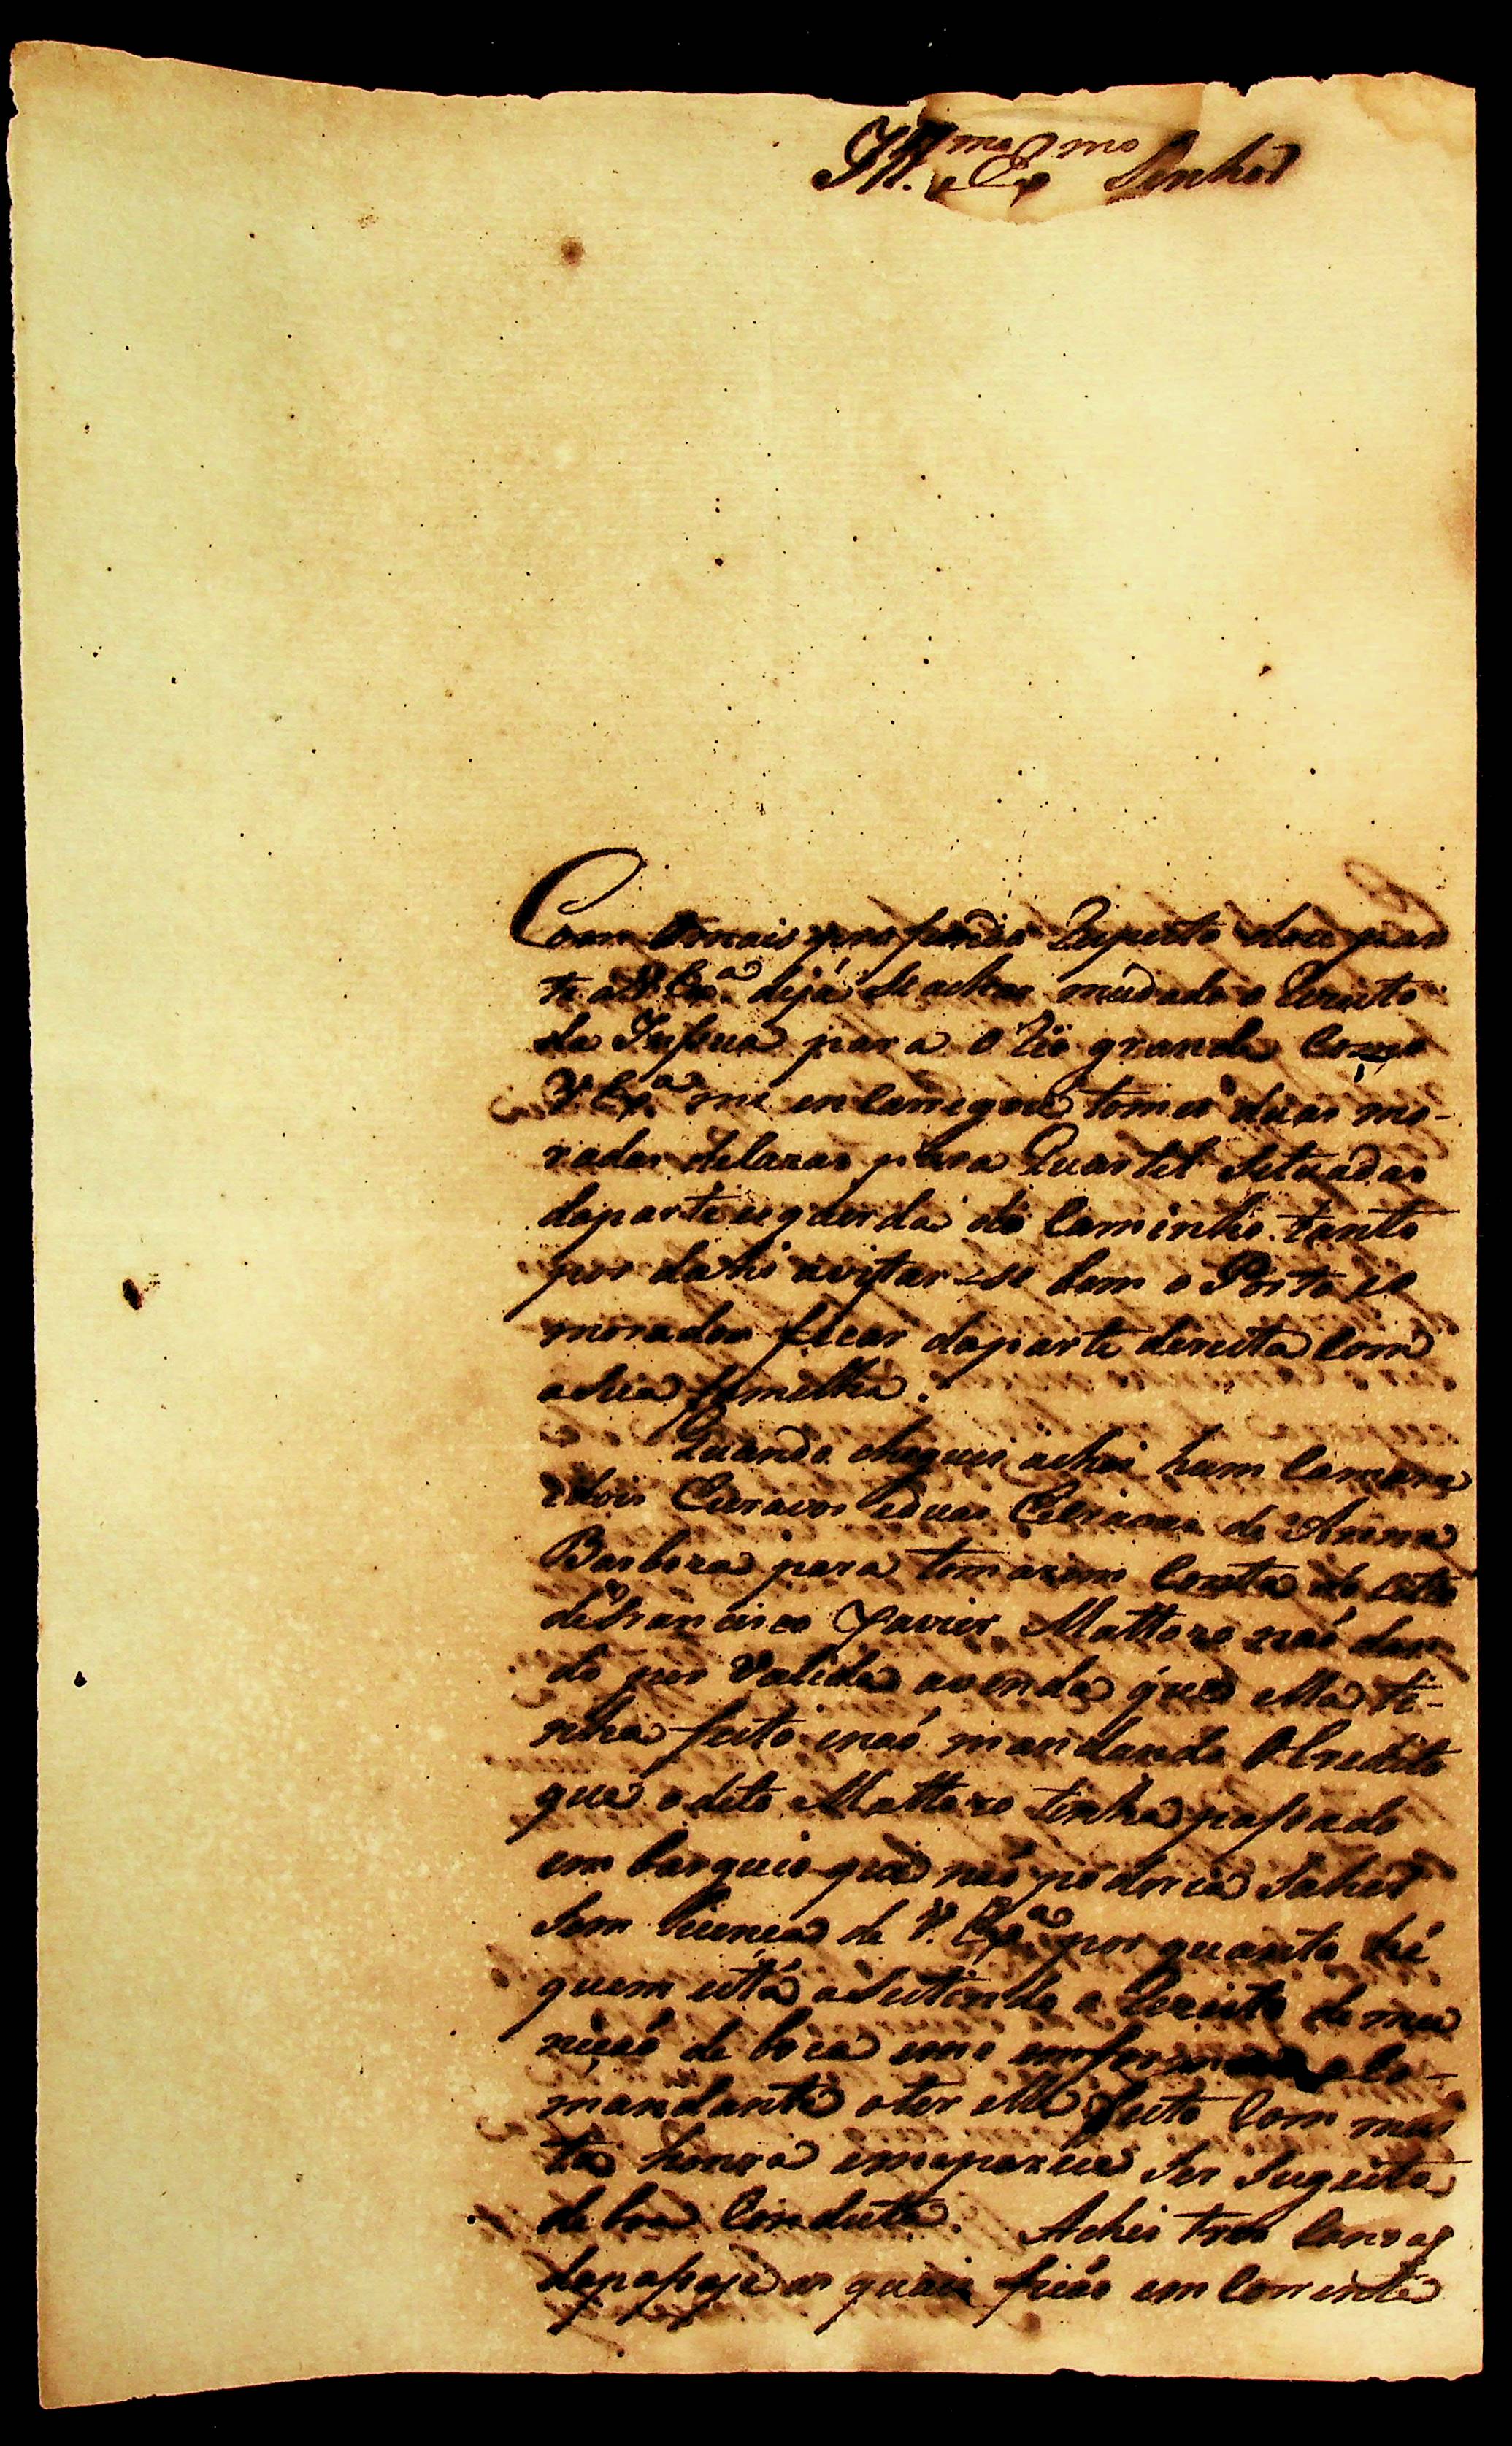 Ill.mo e Ex.mo Senhor
Com o mais profundo Respeito dou par
te a V. Ex.a de já Se achar mudado o Rezisto
da Insua para o Rio grande Como
V. Ex.a me encarregou tomei duas mo-
radas de Cazas para Quartel Setuadas
da parte esquerda do Caminho tanto
por dahi avistar-se bem o Porto e o
morador ficar da parte dereita Com
a Sua familha.
Quando cheguei achei hum Camara
e dois Escravos e duas de Anna
Barboza para tomarem Conta do citio
de Francisco Xavier Mattozo naó dan
do por Valida a venda que ella ti-
nha feito e naó mandando o Credito
que o dito Mattozo tinha passado
em barguei que naó poderia Sahir
Sem licença de V. Ex.a por quanto hé
quem está asestindo o Rezisto de mu
niçaó de boca e me o Co-
mandante o ter elle feito Com mui
ta honra e me parece Ser Sugeito
de boa Conducta. Achei tres Canoas
de passaje as quais ficáo em Corrente